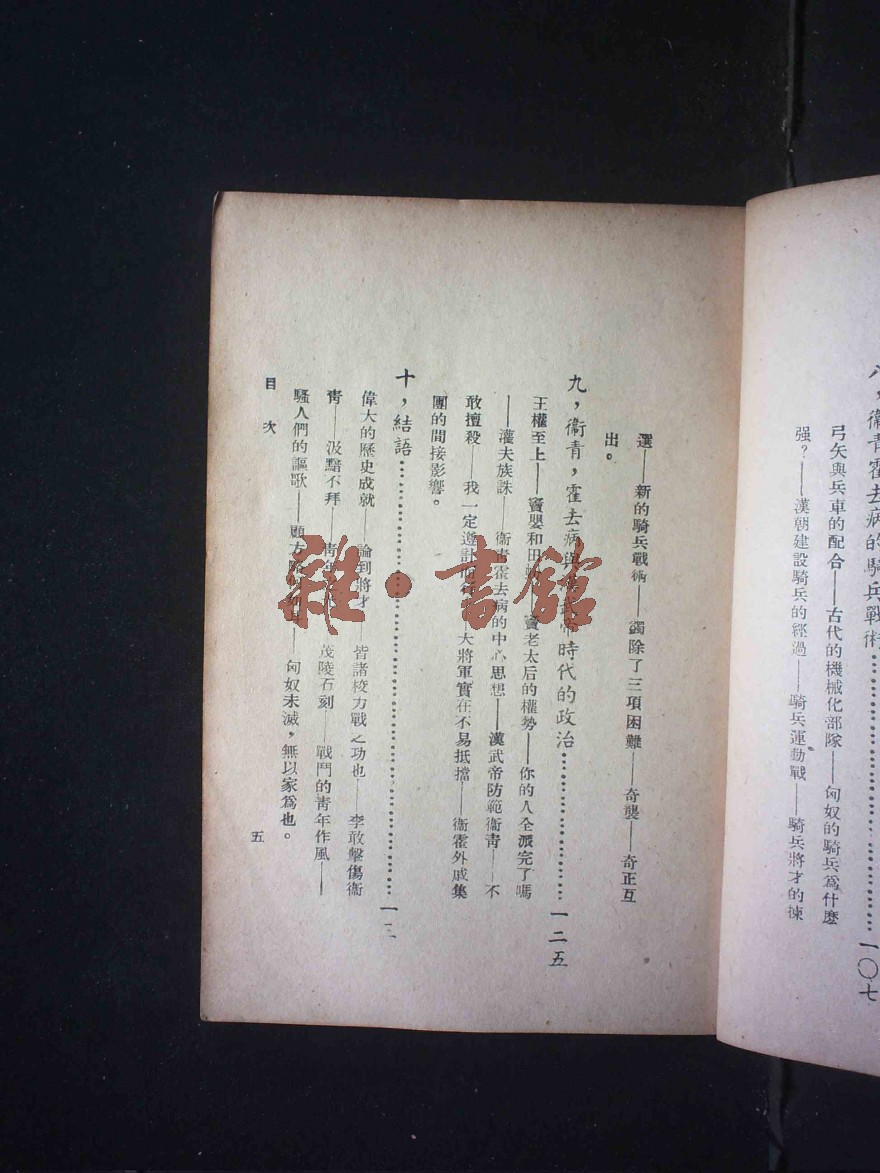 八，衞青霍去病的騎兵戰術……一〇七
弓矢與兵車的配合——古代的機械化部隊——匈奴的騎兵爲什麽
强？——漢朝建設騎兵的經過——騎兵運動戰——騎兵將才的揀
選——新的騎兵戰術——蠲除了三項困難——奇襲——奇正互
出。
九，衞青，霍去病與 武帝時代的政治……一二五
王權至上——竇嬰和田 竇老太后的權勢——你的人全派完了嗎
——灌夫族誅——衞青霍去病的中心思想——漢武帝防範衞青——不
敢擅殺——我一定遵計 大將軍實在不易抵擋——衞霍外戚集
團的間接影響。
十，結語……一
偉大的歷史成就——論到將才——皆諸校力戰之功也——李敢擊傷衞
青——汲黯不拜——靑年 茂陵石刻——戰鬥的靑年作風——
騷人們的謳歌——顧方略 匈奴未滅，無以家爲也。
目次
五
雜·書館